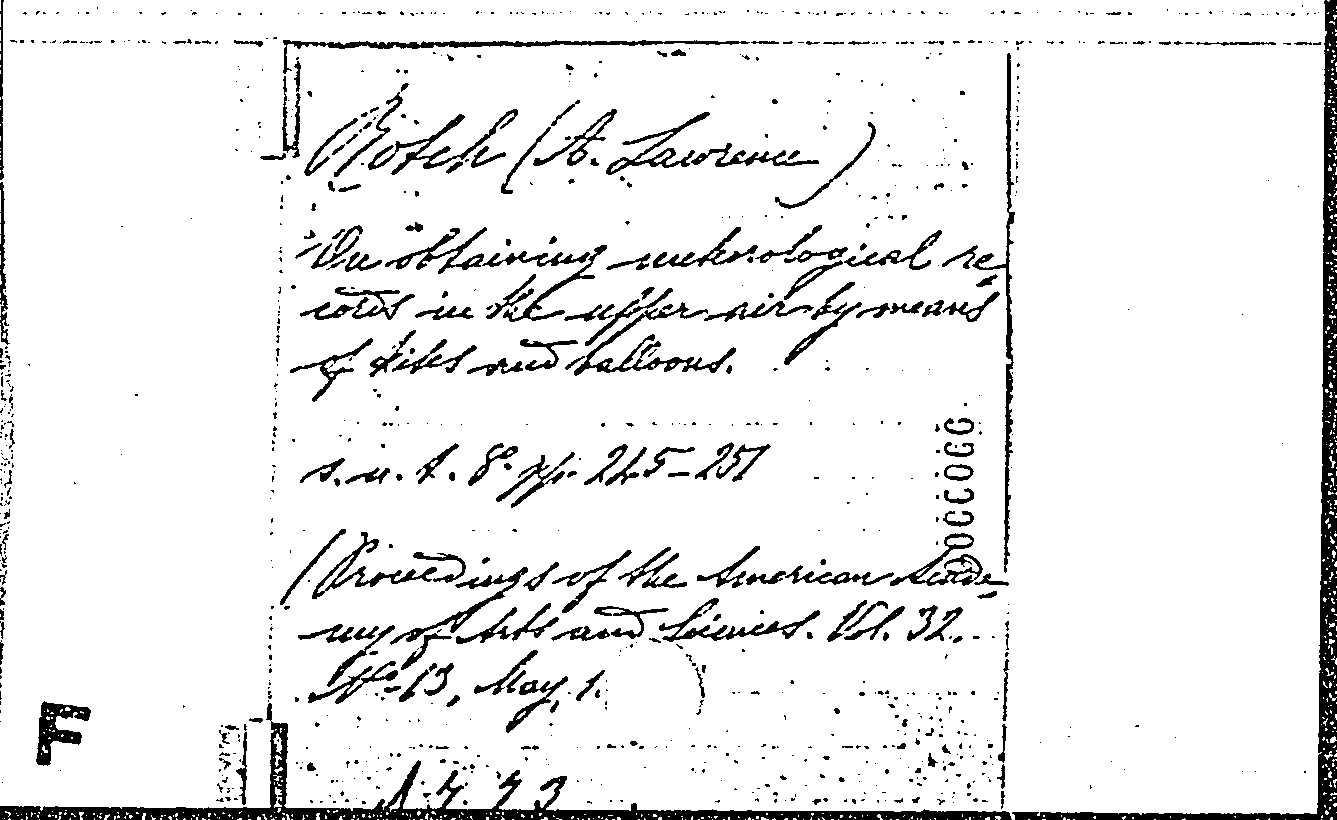 Rotch (A. Lawrence)
On obtaining meteorological re-
cords in the upper air by means
of kites and balloons.
s. n. t. 8º pp. 245-251
(Proceedings of the American Acade-
my of Arts and Sciences. Vol. 32.
Nº 13, May, 1.
F